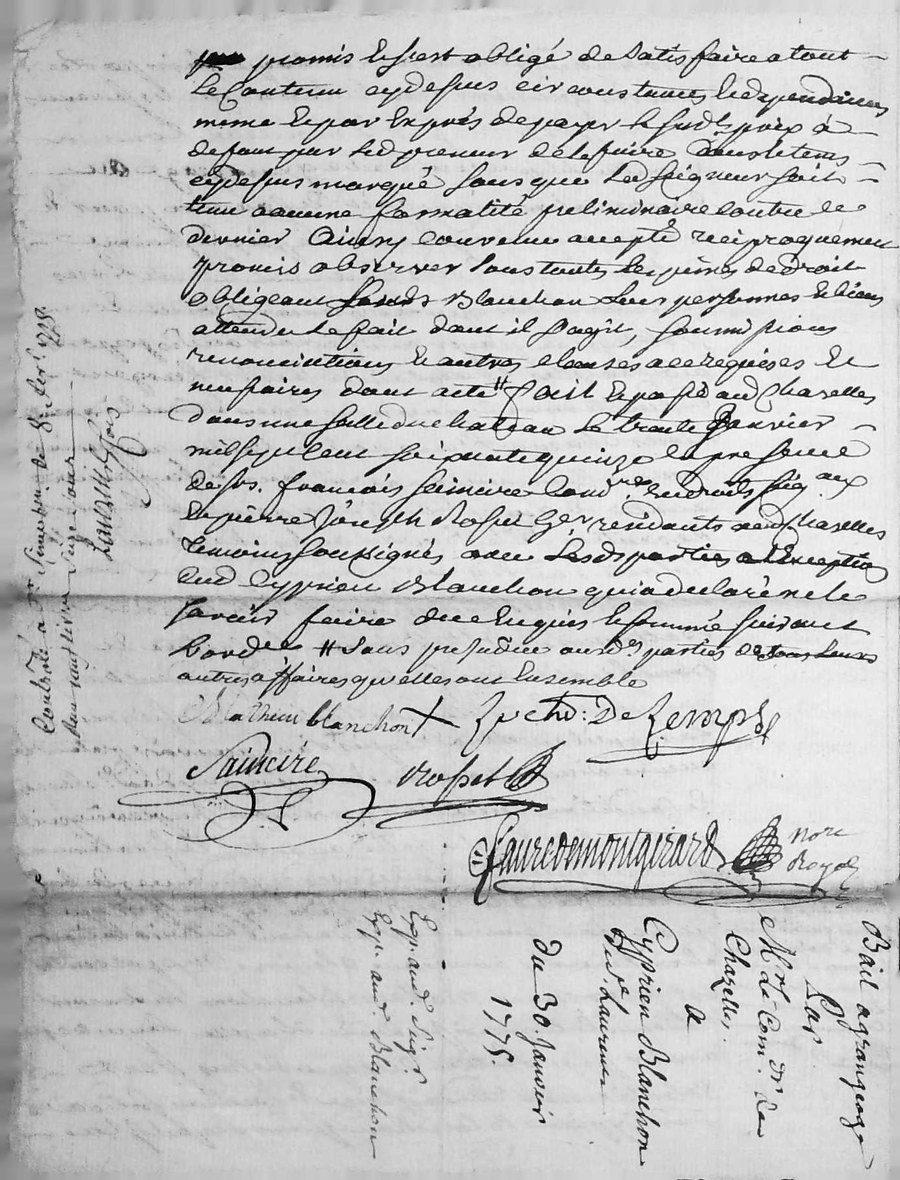 promis et s'est obligé de satisfaire a tout
le contenu cy dessus circonstances et dependances
meme et par exprés de payer le susdt prix à
defaut par led preneur de le faire dans le tems
cy dessus marqué sans que led seigneur soit
tenu a aucune formalité preliminaire contre ce
dernier Ainsy convenu accepté reciproquement
promis observer sous toutes les peines de droit
obligeant lesds Blanchon leurs personnes et biens
attendu le fait dont il s'agit, soumissions
renonciations et autres clauses a ce requises et
necessaires dont acte # fait et passé aud Chazelles
dans une salle du chateau le trente Janvier
mil sept cent soixante quinze en presence
de sr. francois
et pierre Joseph Rosset residants aud Chazelles
temoins soussignés avec lesds parties a l'exception
dud Cyprien Blanchon qui a declaré ne le
savoir faire de ce enquis et sommé suivant
l'ordce # sans prejudice auxds parties de tous leurs
autres affaires qu'elles ont ensemble
Blanchon + De
Sainciré Rosset
fauredemontgirard nore
Royal
Controllé a
Bail a grangeage
Par
Mr. de Chazelles
a
Cyprien Blanchon
Laurent
du 30. Janvier
1775.
Exp aud. Sigr.
Exp. aud. Blanchon